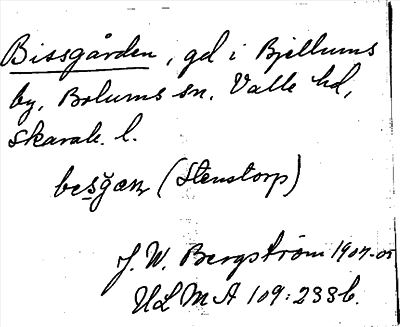 Bissgården, gd i Bjellums
by, Bolums sn. Valle hd,
Skarab. l.
besgæɳ (Stenstorp)
J. W. Bergström 1904-05
ULMA 109:233b.